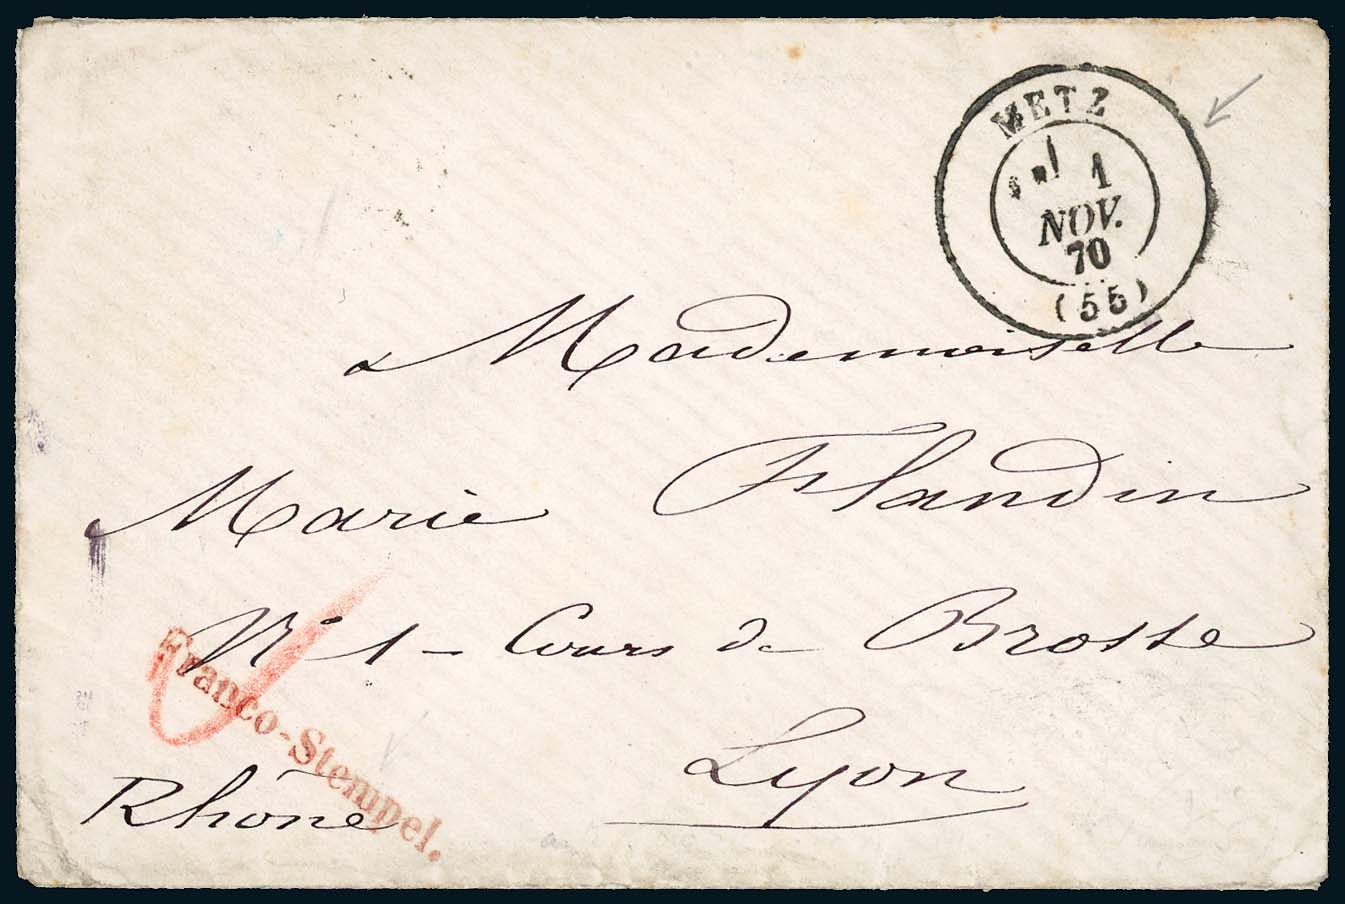 METZ
1
NOV.
70
(55)
a Mademoiselle
Marie Flandin
N° 1 - Cours de Brosse
Lyon
Rhône
Franco-Stempel.